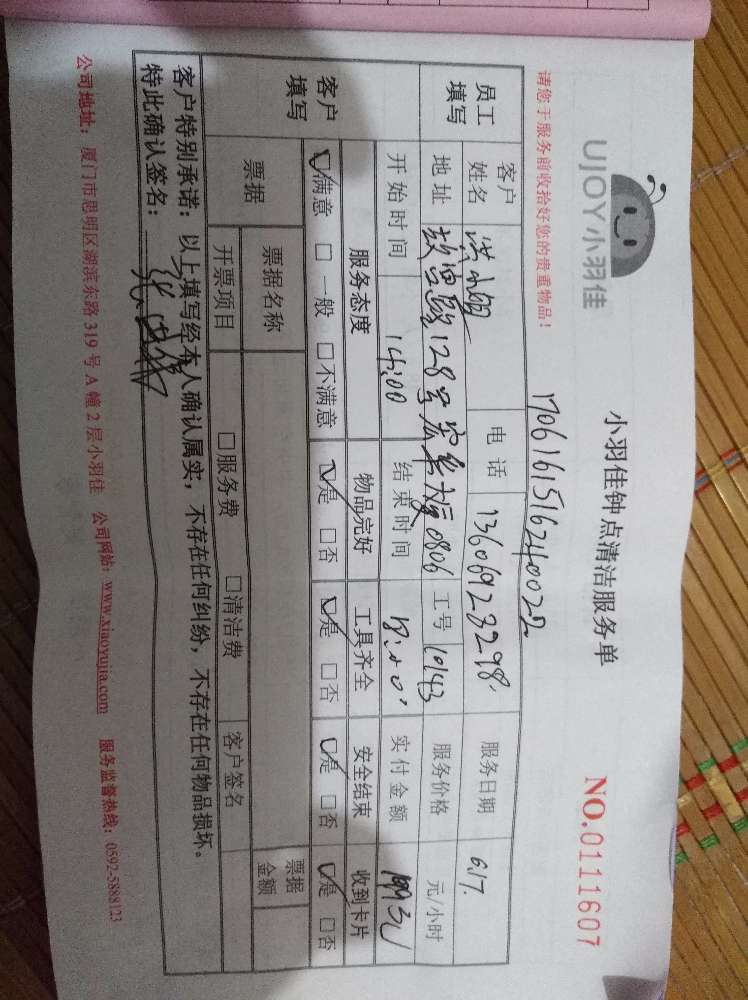 UJOY小羽佳
小羽佳钟点清洁服务单
NO.0111607
请您于服务前收拾好您的贵重物品！
1706161516240022
员工填写
客户姓名 电话 13606923298 服务日期 6.17.
地址 128号 0806 工号 10143 服务价格 元/小时
开始时间 14:00 结束时间 实付金额
客户填写
服务态度 物品完好 工具齐全 安全结束 收到卡片
☑满意 □一般 □不满意 ☑是 □否 ☑是 □否 ☑是 □否 ☑是 □否
票据 票据名称 票据金额
开票项目 □服务费 □清洁费 客户签名
客户特别承诺：以上填写经本人确认属实，不存在任何纠纷，不存在任何物品损坏。
特此确认签名：
公司地址：厦门市思明区湖滨东路319号A幢2层小羽佳 公司网站：www.xiaoyujia.com 服务监督热线：0592-5888123